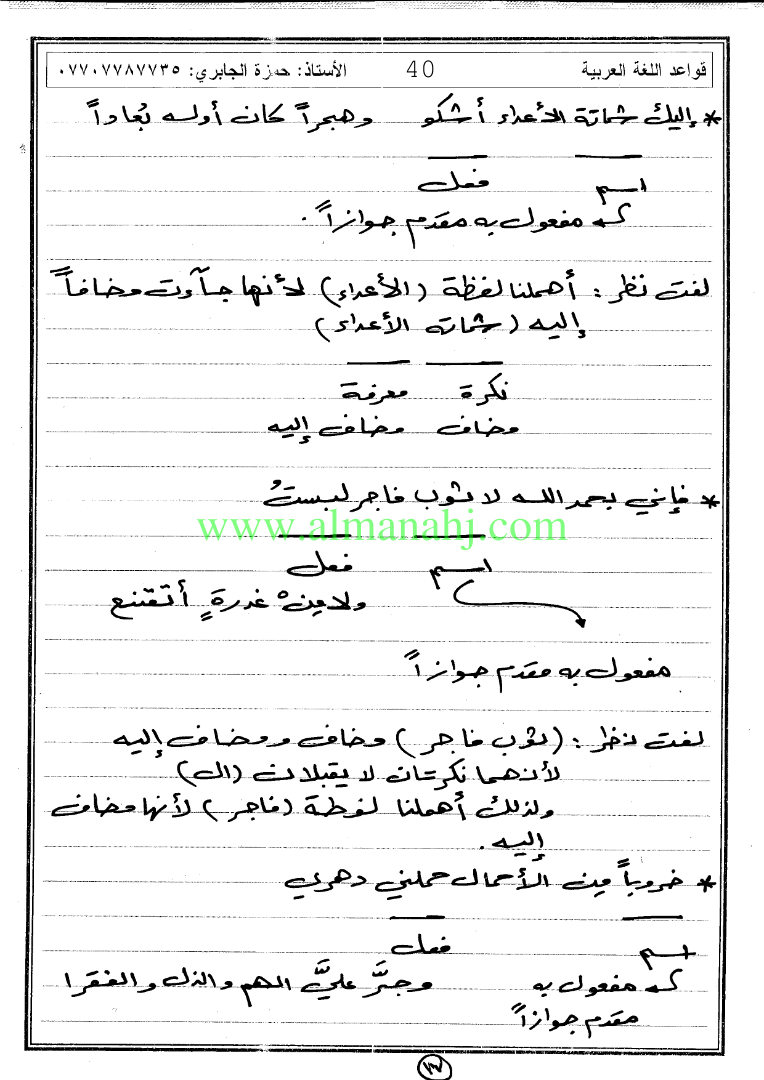 قواعد اللغة العربية 40 الأستاذ: حمزة الجابري: ٠٧٧٠٧٧٨٧٧٣٥
* إليك شماتة الأعداء أشكو وهجراً كان أوله بُعاداً
اسم فعل
مفعول به مقدم جوازاً.
لفت نظر: أهملنا لفظة (الأعداء) لأنها جاءت مضافاً
إليه (شماتة الأعداء)
نكرة معرفة
مضاف مضاف إليه
* فإني بحمد الله لا ثوب فاجر لبستُ
www.almanahj.com
اسم فعل
ولا مِنْ غدرةٍ أتقنع
مفعول به مقدم جوازاً
لفت نظر: (ثوب فاجر) مضاف ومضاف إليه
لأنهما نكرتان لا يقبلان (ال)
ولذلك أهملنا لفظة (فاجر) لأنها مضاف
إليه.
* ضروباً مِن الأحمال حملني دهري
اسم فعل
مفعول به وجرَّ عليَّ الهم والذل والفقرا
مقدم جوازاً